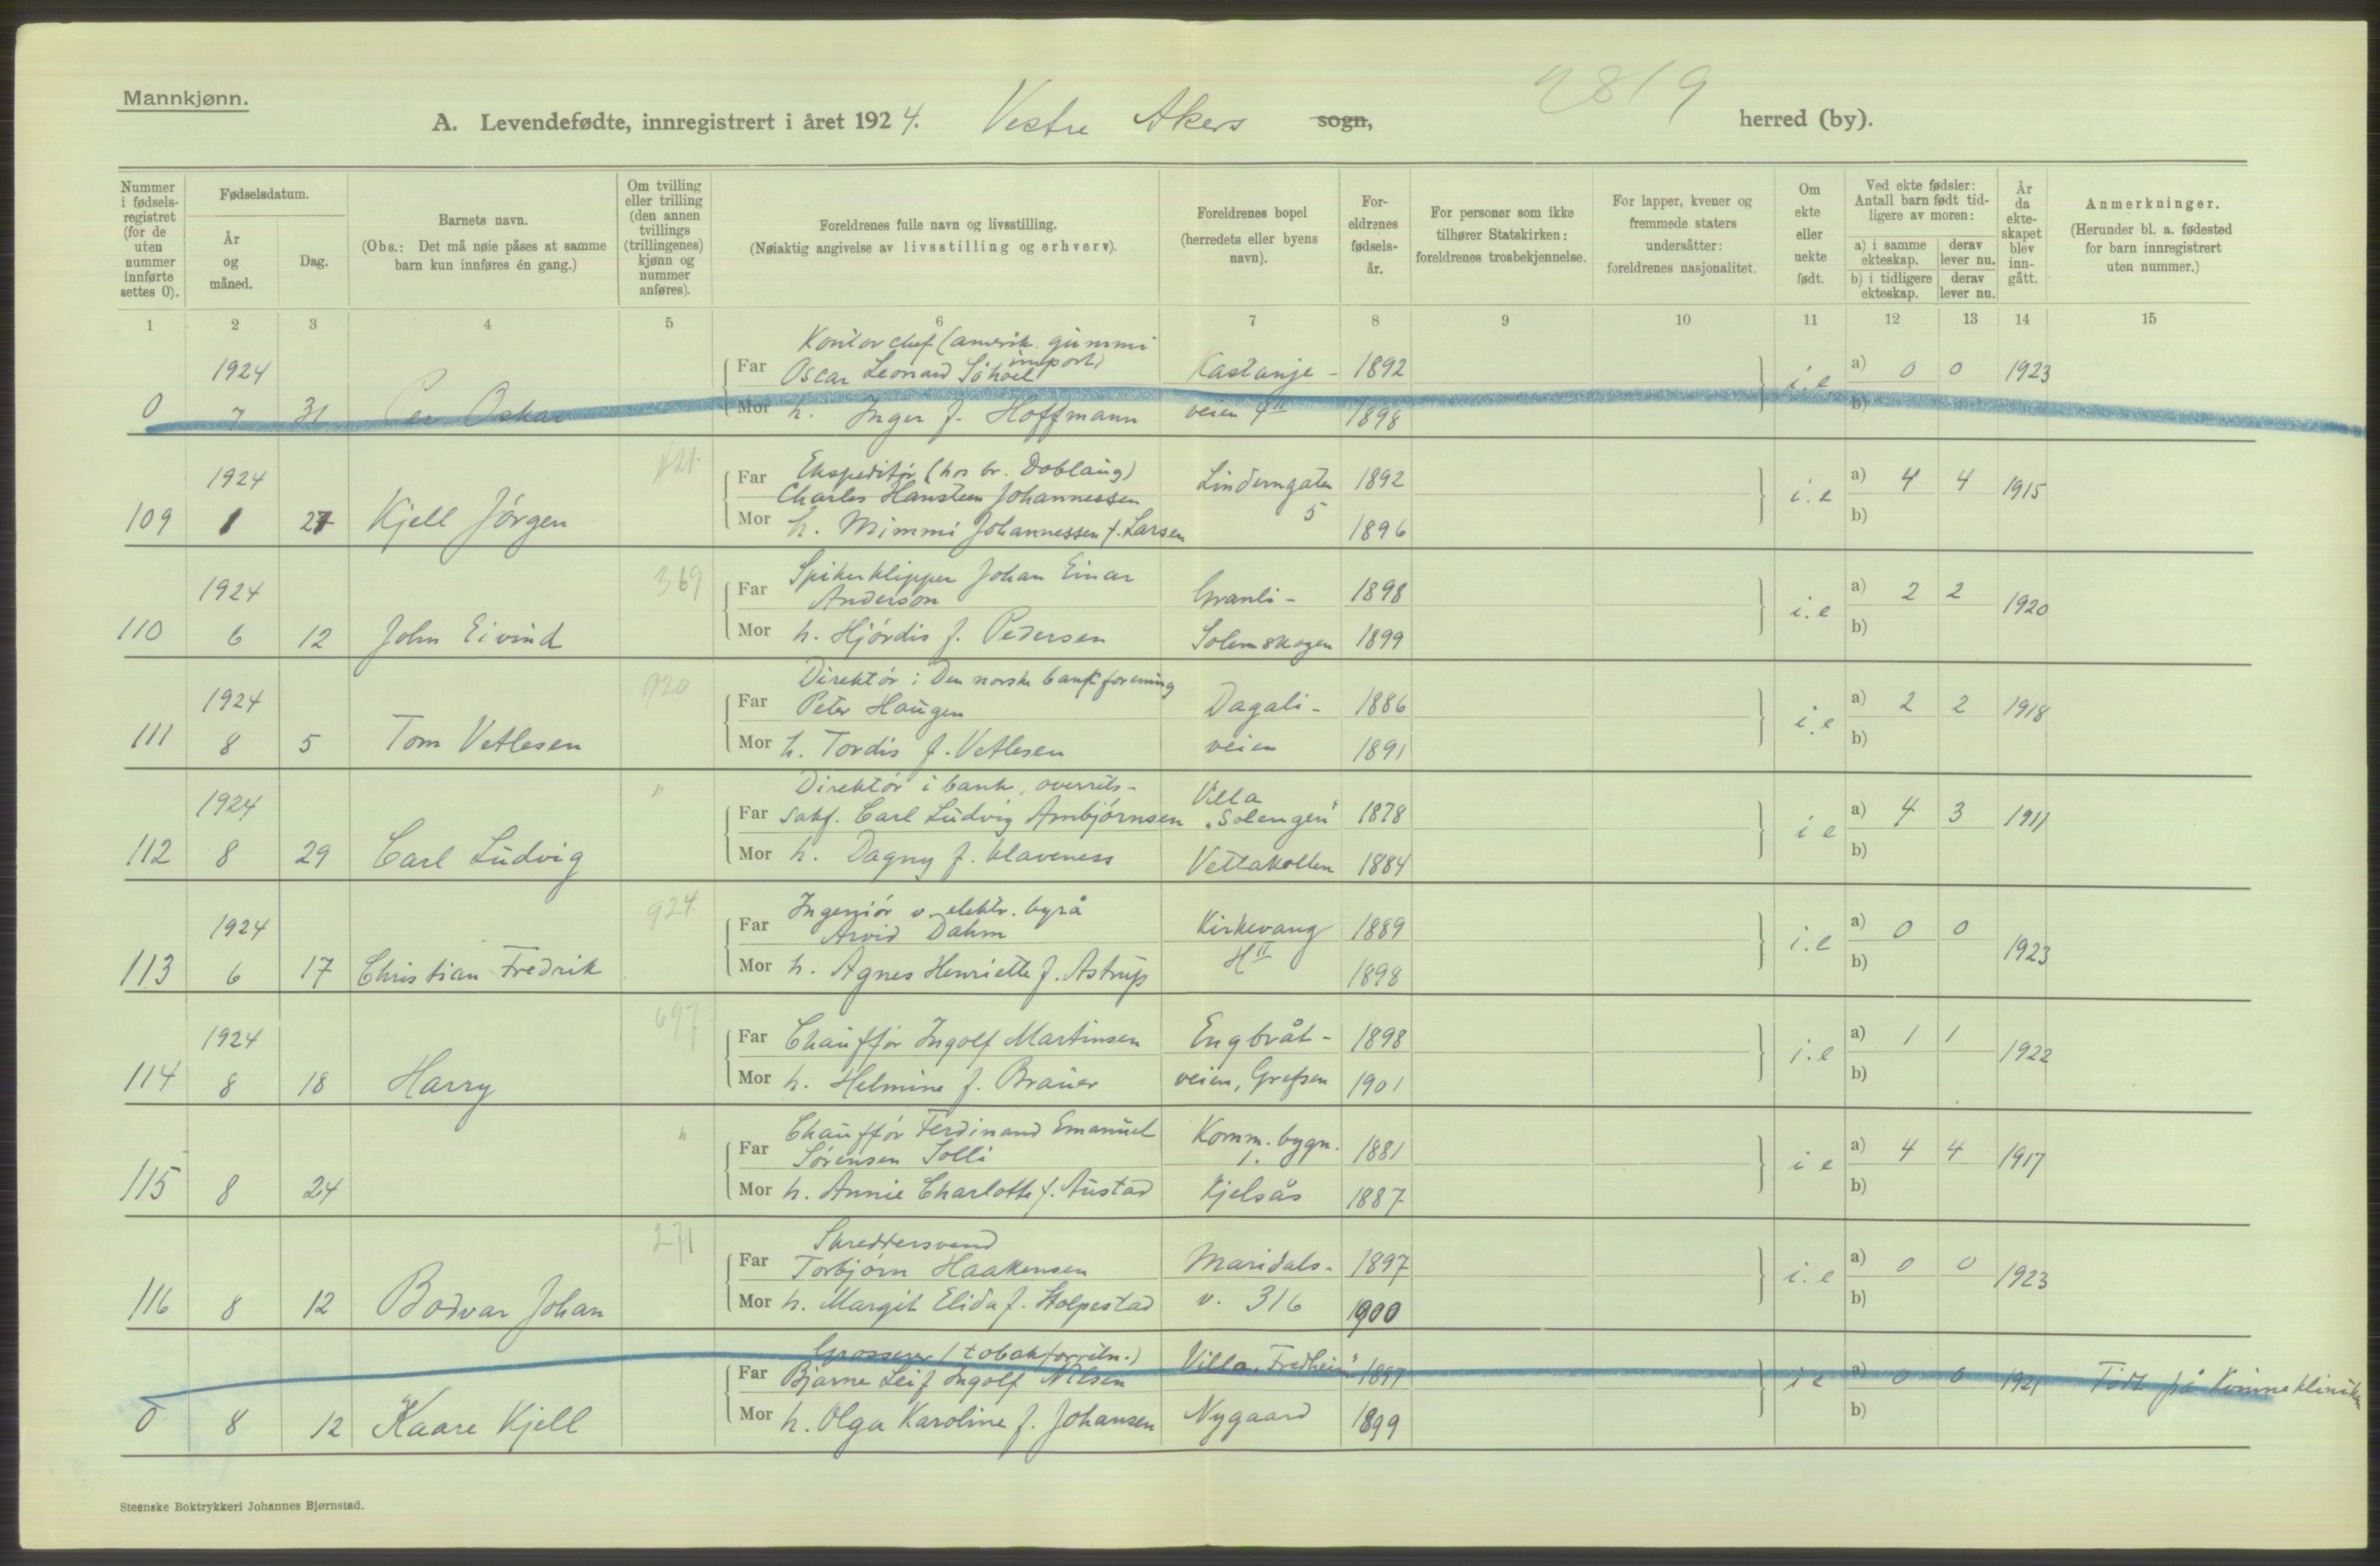 Mannkjønn.
2819
A. Levendefødte, innregistrert i året 1924. Vestre Akers sogn, herred (by).
Nummer i fødsels-registret (for de uten nummer innførte settes 0).
Fødselsdatum.
År og måned.
Dag.
Barnets navn.
(Obs.: Det må nøie påses at samme barn kun innføres én gang.)
Om tvilling eller trilling (den annen tvillings (trillingenes) kjønn og nummer anføres).
Foreldrenes fulle navn og livsstilling.
(Nøiaktig angivelse av livsstilling og erhverv).
Foreldrenes bopel (herredets eller byens navn).
For-eldrenes fødsels-år.
For personer som ikke tilhører Statskirken: foreldrenes trosbekjennelse.
For lapper, kvener og fremmede staters undersåtter: foreldrenes nasjonalitet.
Om ekte eller uekte født.
Ved ekte fødsler: Antall barn født tid-ligere av moren:
a) i samme ekteskap. derav lever nu.
b) i tidligere ekteskap. derav lever nu.
År da ekte-skapet blev inn-gått.
Anmerkninger.
(Herunder bl. a. fødested for barn innregistrert uten nummer.)
1 2 3 4 5 6 7 8 9 10 11 12 13 14 15
Kontorchef (amerik. gummi import)
1924 Far Oscar Leonard Kastanje- 1892 i.e a) 0 0 1923
0 7 31 Per Oskar Mor h. Inger f. Hoffmann veien 4 II 1898 b)
421
Ekspeditør (hos br. Dobloug)
1924 Far Charles Hansteen Johannessen Linderngaten 1892 i.e a) 4 4 1915
109 1 27 Kjell Jörgen Mor h. Mimmi Johannessen f. Larsen 5 1896 b)
369
1924 Far Spikerklipper Johan Einar Anderson Granli- 1898 i.e a) 2 2 1920
110 6 12 John Eivind Mor h. Hjördis f. Pedersen Solemskogen 1899 b)
920
Direktör i Den norske bankforening
1924 Far Peter Haugen Dagali- 1886 i.e a) 2 2 1918
111 8 5 Tom Vetlesen Mor h. Tordis f. Vetlesen veien 1891 b)
"
Direktör i bank, overrets-
1924 Far sakf. Carl Ludvig Ambjörnsen Villa „Solengen" 1878 i e a) 4 3 1911
112 8 29 Carl Ludvig Mor h. Dagny f. Klaveness Vettakollen 1884 b)
924
Ingeniör v. elektr. byrå
1924 Far Arvid Dahm Kirkevang 1889 i.e a) 0 0 1923
113 6 17 Christian Fredrik Mor h. Agnes Henriette f. Astrup H II 1898 b)
697
1924 Far Chaufför Ingolf Martinsen Engbråt- 1898 i.e a) 1 1 1922
114 8 18 Harry Mor h. Helmine f. Brauer veien, Grefsen 1901 b)
"
Chaufför Ferdinand Emanuel
Far Sörensen Solli Komm. bygn. 1. 1881 i e a) 4 4 1917
115 8 24 Mor h. Annie Charlotte f. Austad Kjelsås 1887 b)
271
Skreddersvend
Far Torbjörn Haakensen Maridals- 1897 i.e a) 0 0 1923
116 8 12 Bodvar Johan Mor h. Margit Elida f. Stolpestad v. 316 1900 b)
Grosserer (tobakforretn.)
Far Bjarne Leif Ingolf Nilsen Villa „Fredheim" 1897 i e a) 0 0 1921 Född på Kvinneklinikken
0 8 12 Kaare Kjell Mor h. Olga Karoline f. Johansen Nygaard 1899 b)
Steenske Boktrykkeri Johannes Bjørnstad.